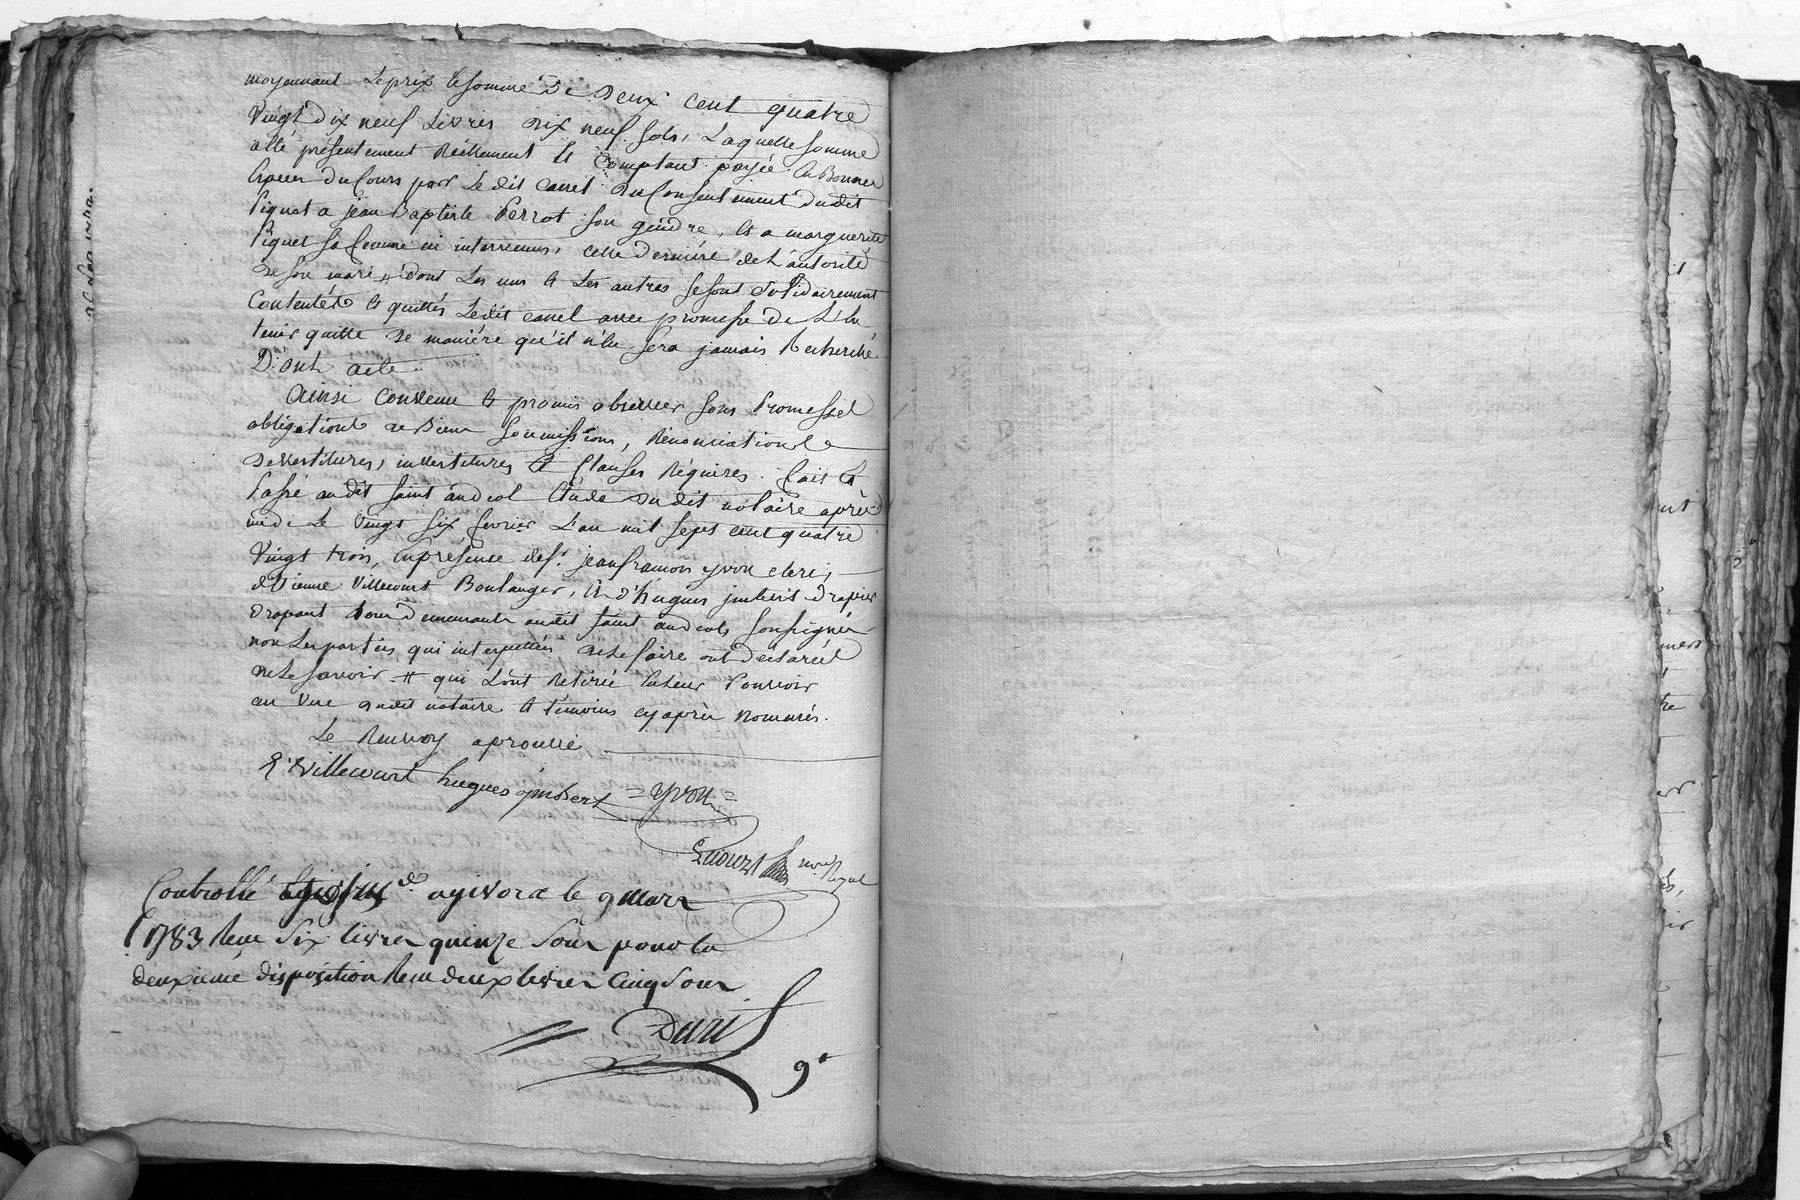 moyennant Le prix & somme de Deux cent quatre
Vingt Dix neuf Livres Dix neuf sols, Laquelle somme
a été présentement Réellement & comptant payée en Bonnes
Especes Du Cours par Le dit Canel Du Consentement Dudit
Piquet a jean Baptiste Perrot son gendre, & a marguerite
Piquet sa femme ici intervenus, cette Derniére de L'autorité
De son mari # Dont Les uns & Les autres se sont solidairement
Contentés & quittés Ledit Canel avec promesse De L'en
tenir quitte De maniére qu'il n'en sera jamais Recherché
Dont acte.
Ainsi Convenu & promis observer sous Promesses
obligations de Biens soumissions, Rénonciations
Devestitures, investitures & Clauses Réquises. fait &
Passé audit saint andeol Etude Du dit notaire après
midi Le Vingt six fevrier L'an mil sept cent quatre
Vingt trois, en présence de sr. jean françois yvon clerc,
d'Etienne Villecourt Boulanger, & d'hugues jmbert Drapier
Drapant tous Demeurants audit saint andeol, soussignés
non Les parties qui interpellées De Le faire ont Déclarés
ne Le savoir # qui L'ont Retirée en Leur Pouvoir
au Vue dudit notaire & témoins cy après nommés.
Le Renvoy aprouvé
E. Villecourt hugues jmbert = yvon =
nore Royal
Controllé a givors le 9 mars
1783 Reçu Six livres quinze Sous pour la
deuxieme disposition Reçu deux livres Cinq Sous
9#